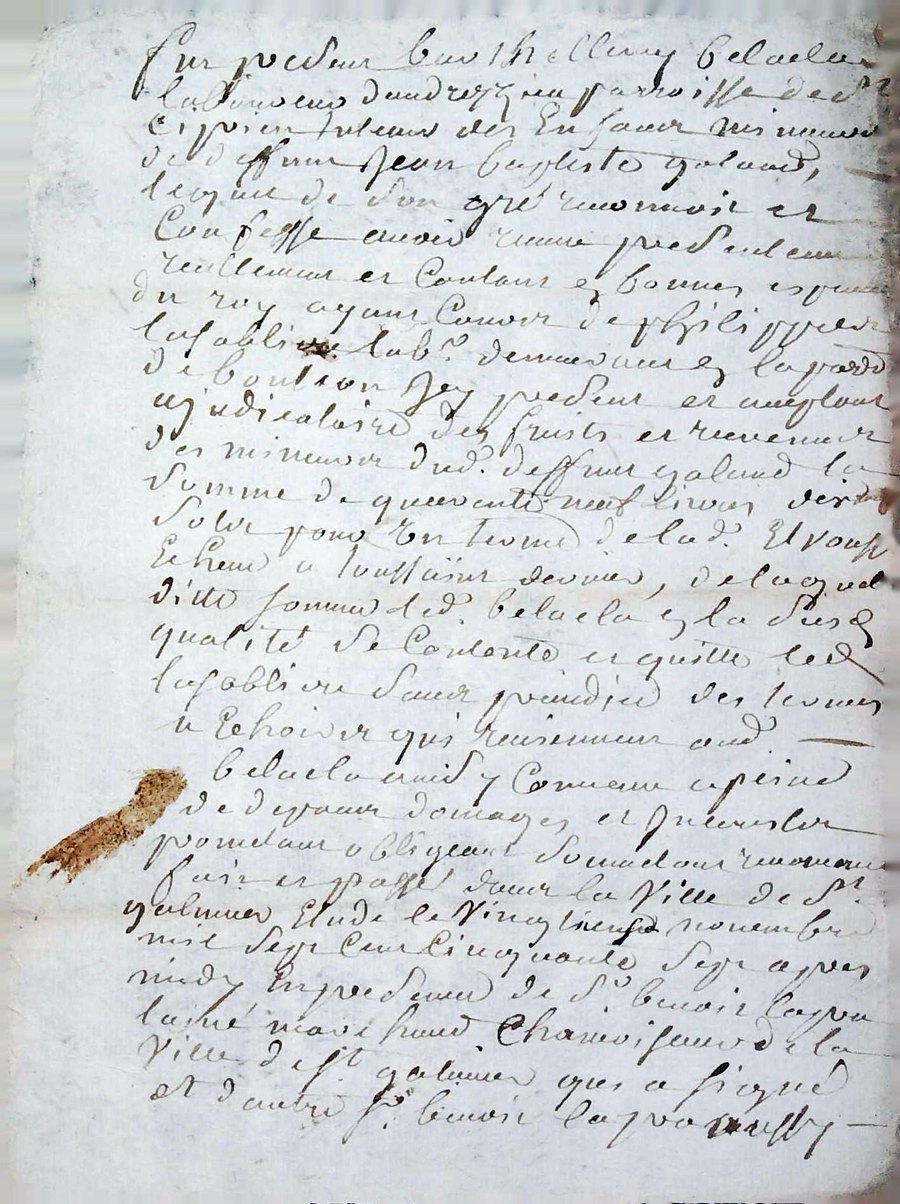 fut présent barthellemy belacla
laboureur dandrezieu parroisse de st
Ciprien tuteur des Enfans mineurs
de deffunt Jean baptiste galand,
lequel de son gré reconnoit et
Confesse avoir receu presentem
reellement et Contant en bonnes especes
du roy ayant Cours de philippe
lasabliere labr. demeurant en la parr
de bouteon Icy present et acceptant
ajudicataire des fruits et revenus
des mineurs dud. deffunt galand la
somme de quarante neuf livres dix
sols pour un terme de lad.
Echeu a toussaint dernier, de laquel
ditte somme led. belacla en la susd
qualité se Contente et quitte led
lasabliere sans prejudice des termes
a Echoir et qui reviennent aud.
belacla ainsy Convenu a peine
de depens domages et Interests
promettant obligeant soumettant renoncant
fait et passé dans la Ville de St.
galmier Etude le Vingtieme novembre
mil sept Cent Cinquante sept apres
midy En presence de Sr. benoit lapra
lainé marchand Chamoiseur de la
Ville de st galmier qui a signé
et dautre Sr. benoit lapra aussy